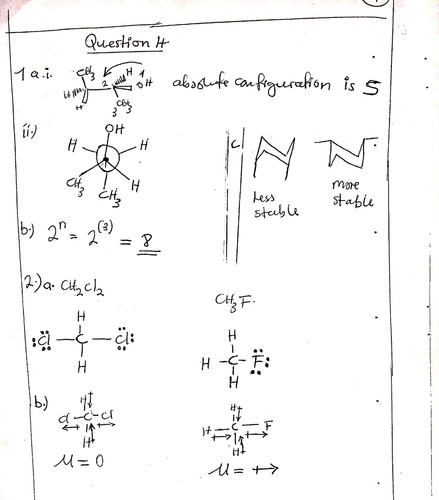 Question 4
1 a.i.
CH3 2 H 1 OH
H H 3 CH3
absolute configuration is S
ii.)
OH
H H
CH3 CH3 H
C
Less stable
more stable
b.) 2^n = 2^(3) = 8
2.) a. CH2Cl2
CH3F.
H
:Cl — C — Cl:
H
H
H — C — F:
H
b.)
H
Cl — C — Cl
H
μ = 0
H
H — C — F
H
μ = +→